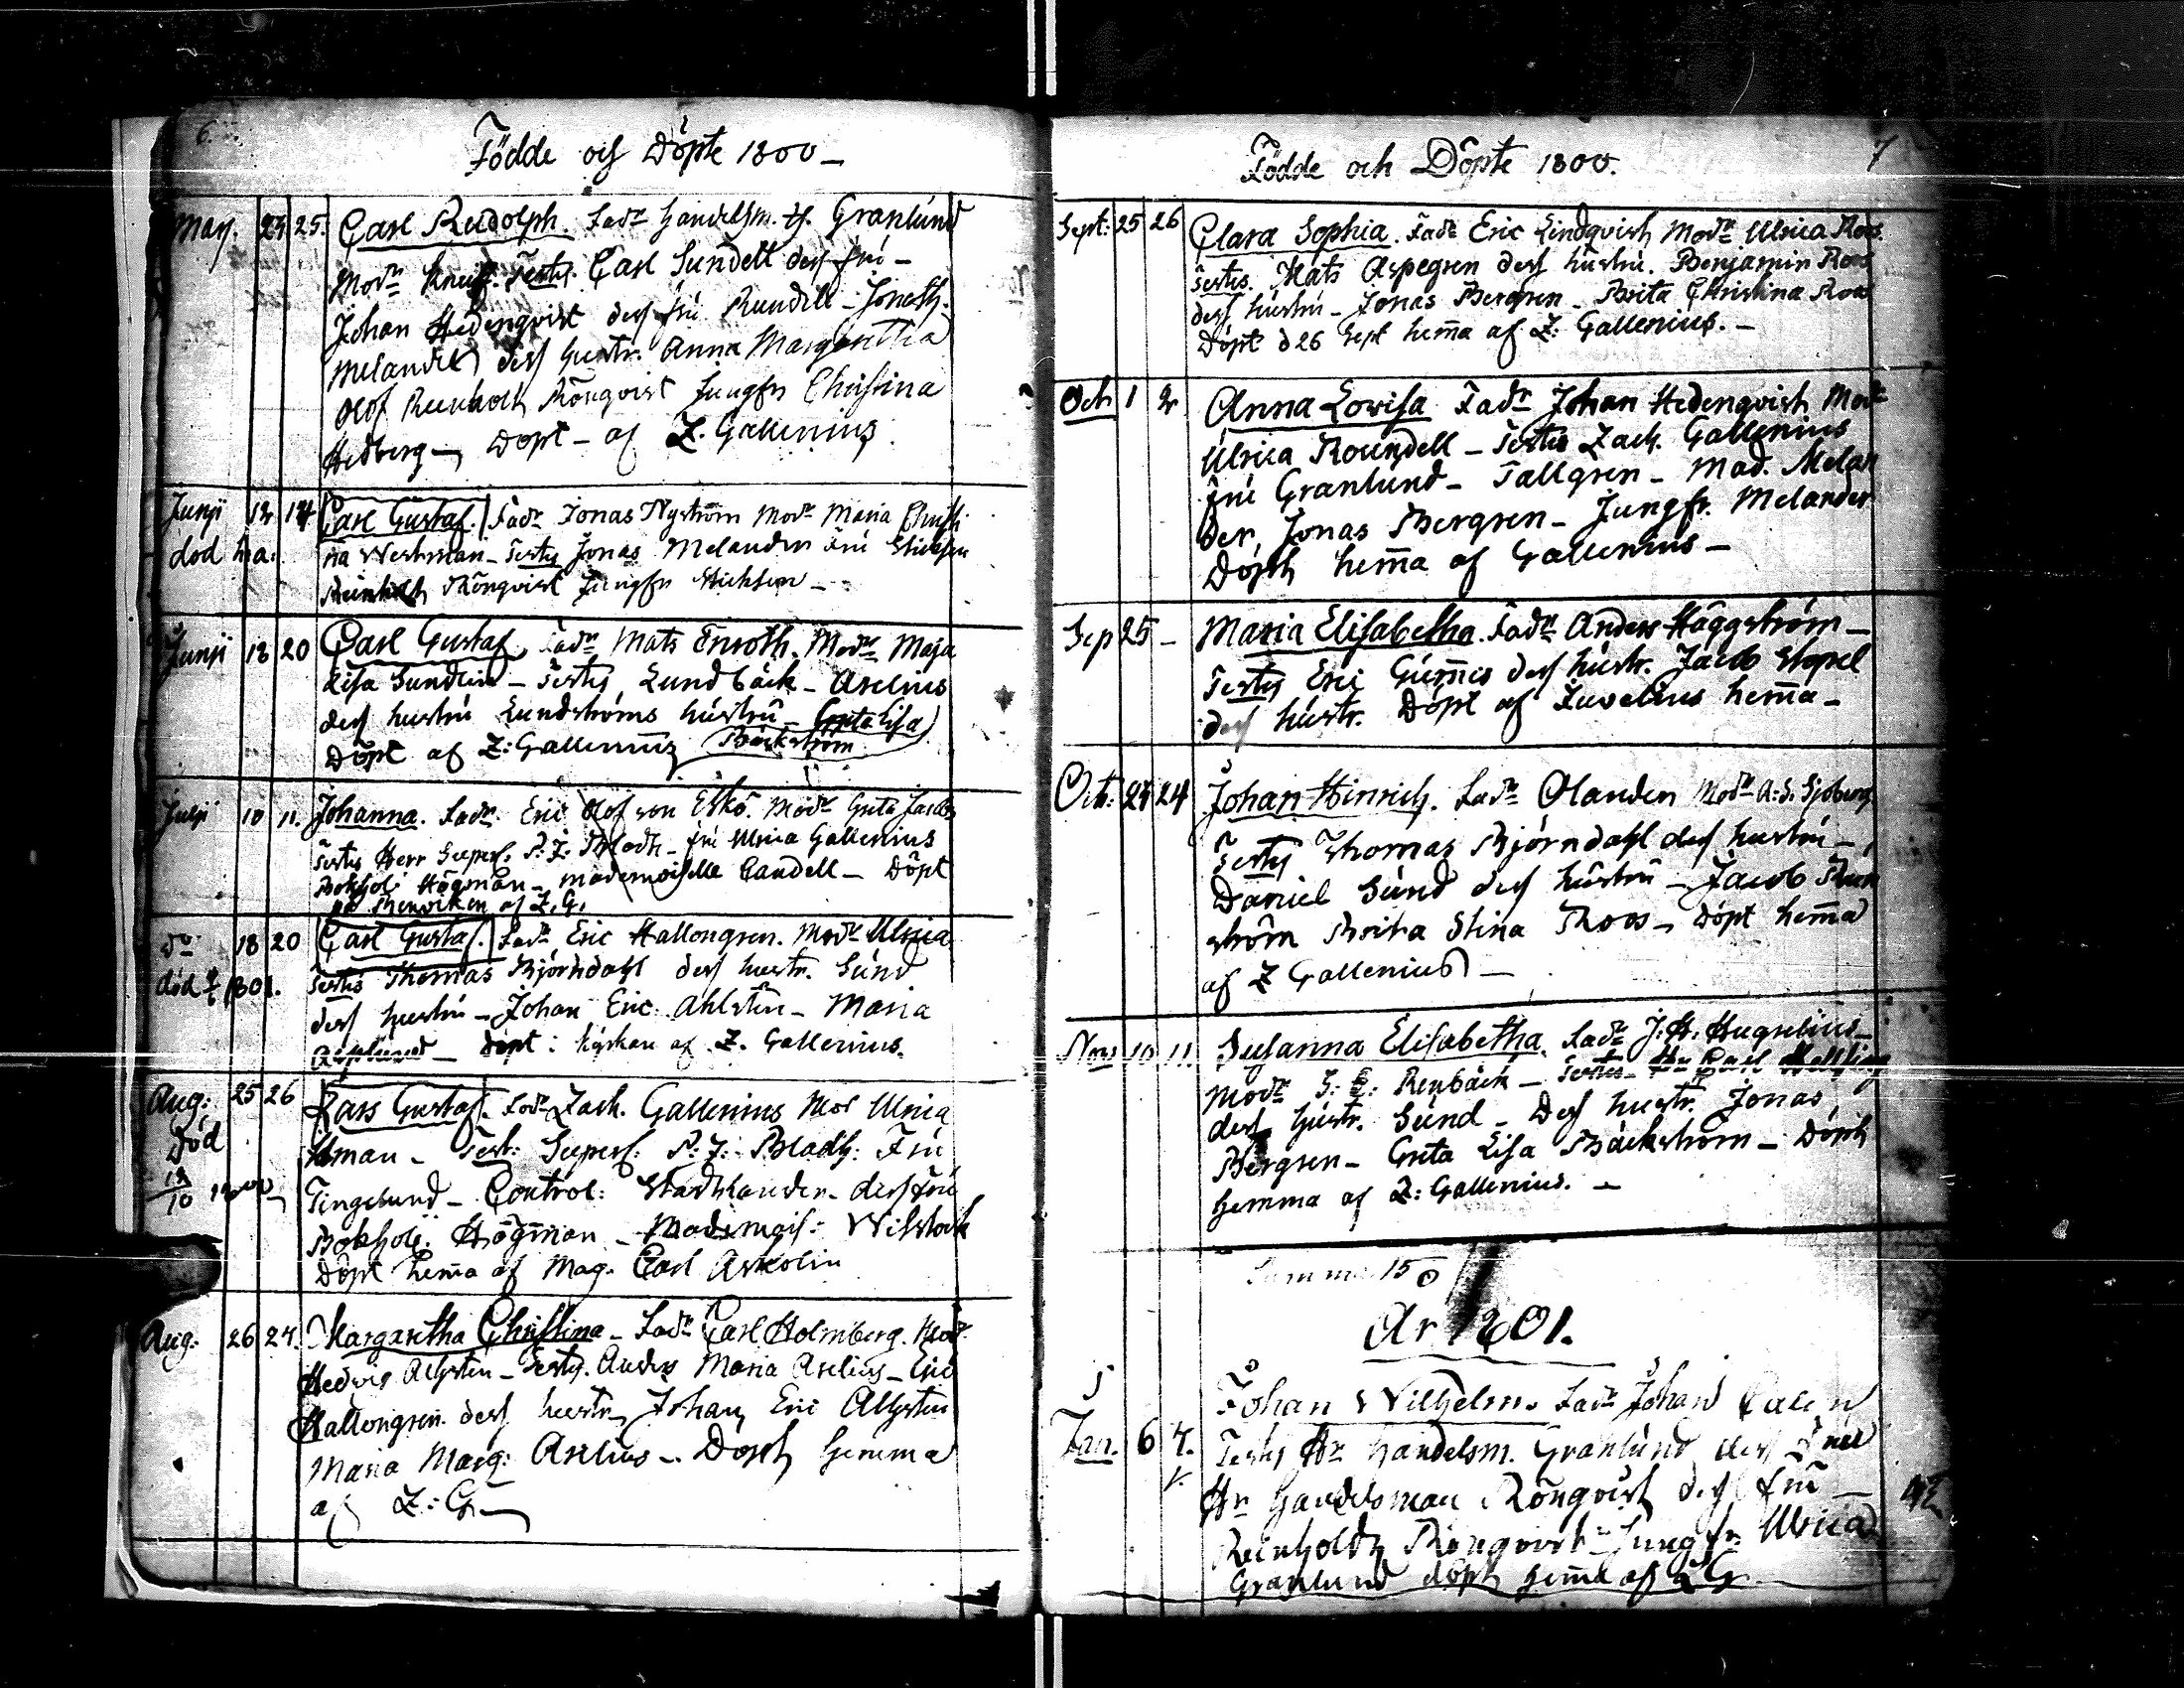 6.
Födde och Döpte 1800 –
May. 24. 25. Carl Rudolph. Fadr Handelsm. H. Granlund
Modr Testes. Carl Sundell dess fru –
Johan Hedenqvist dess fru Rundell – Jonas
Melander dess hustr. Anna Margaretha
Olof Reinhold Rönqvist Jungfr Christina
Hedberg – Döpt – af Z. Gallenius.
Junji 12 14 Carl Gustaf. Fadr Jonas Nyström Modr Maria Christi
död na Westman – Testes Jonas Melander Fru
Reinhold Rönqvist Jungfr –
Junji 18 20 Carl Gustaf. Fadr Mats Enroth. Modr Maja
Lisa Sundlin – Testes Lundbäck – Aselius
dess hustru Lundströms hustru – Greta Lisa
Döpt af Z: Gallenius Bäckström
Julji 10 11. Johanna. Fadr. Eric Olof son Eskö. Modr Greta Jacobs
Testes Herr Superc. P. J. Bladh – fru Ulrica Gallenius
Bokhol: Högman – mademoiselle Candell – Döpt
på Benviken af Z. G.
do 18 20 Carl Gustaf. Fadr Eric Hallongren. Modr Ulrica
död 1801. Testes Thomas Björndahl dess hustr. Sund
dess hustru – Johan Eric Ahlsten – Maria
Asplund – döpt i kyrkan af Z. Gallenius.
Aug: 25 26 Lars Gustaf. Fadr Zach. Gallenius Mor Ulrica
Död Test: Superc. P. J. Bladh: Fru
12/10 1800 Tingelund – Control: Stadslander – dess fru
Bokhol: Högman – Mademois: Wilstock
Döpt hema af Mag. Carl Askolin
Aug. 26 27. Margaretha Christina – Fadr Carl Holmberg. Modr
Hedvig Alsten – Testes. Anders Maria Aselius – Eric
Hallongren dess hustr, Johan Eric Ahlsten
Maria Marg: Aselius – Döpt hemma
af Z: G
7
Födde och Döpte 1800.
Sept: 25 26 Clara Sophia. Fadr Eric Lindqvist Modr Ulrica Roos.
Testes. Mats Aspegren dess hustru. Benjamin Roos
dess hustru – Jonas Bergren – Brita Christina Roos
Döpt d 26 Sept hema af Z: Gallenius. –
Oct 1 2 Anna Lovisa Fadr Johan Hedenqvist Modr
Ulrica Roundell – Testes Zach. Gallenius
fru Granlund – Tallgren – Mad. Melan
der, Jonas Bergren – Jungfr. Melander
Döpt hema af Gallenius –
Sep 25 – Maria Elisabetha. Fadr Anders Häggström –
Testes Eric dess hustr. Jacob Stapel
dess hustr. Döpt af Juvelius hema –
Oct: 24 24 Johan Hinrich. Fadr Olander Modr A: S: Sjöberg
Testes Thomas Björndahl dess hustru –
Daniel Sund dess hustru – Jacob Run
ström Brita Stina Roos – Döpt hema
af Z Gallenius –
Nov 10 11 Susanna Elisabetha. Fadr J. H. Hugelius –
Modr S: E: Renbäck – Testes – Hr Carl Hellberg
dess hustr. Sund – Dess hustr. Jonas
Bergren – Greta Lisa Bäckström – Döpt
hemma af Z: Gallenius. –
Summa 15
Ar 1801.
Jan. 6 7. Johan Wilhelm. Fadr Johan Calen
Testes Hr Handelsm. Granlund dess Fru
Hr Handelsman Rönqvist dess fru –
Reinholdt Rönqvist – Jungfr. Ulrica
Granlund döpt hema af Z G